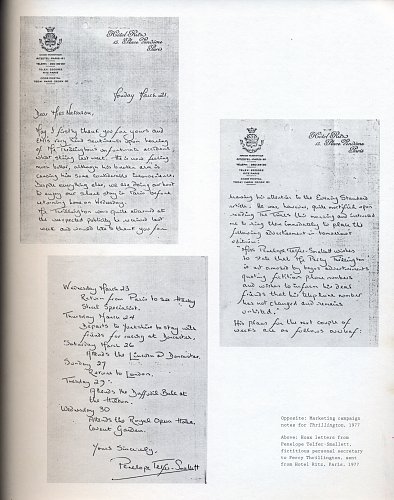 Hotel Ritz
15, Place Vendôme
Paris
Monday March 21.
Dear Miss
May I firstly thank you for yours and
very kind sentiments upon hearing
of Mr Thrillington's unfortunate accident
whilst skiing last week. He is now feeling
much better, although his broken arm is
causing him some considerable inconvenience.
Despite everything else, we are doing our best
to enjoy our short stay in Paris before
returning home on Wednesday.
Mr Thrillington was quite alarmed at
the unexpected publicity he received last
week and would like to thank you for
Hotel Ritz
15, Place Vendôme
Paris
drawing his attention to the Evening Standard
article. He was, however, quite mortified upon
reading The Times this morning and instructed me
to ring them immediately to place the
following advertisement in tomorrow's
edition:
"Miss Penelope Telfer-Smallett wishes
to state that Mr Percy Thrillington
is not amused by bogus advertisements
quoting fictitious phone numbers
and wishes to inform his dear
friends that his telephone number
has not changed and remains
unlisted."
His plans for the next couple of
weeks are as follows overleaf:
Wednesday March 23
Return from Paris to see Harley
Street Specialist.
Thursday March 24
Departs to Yorkshire to stay with
friends for racing at Doncaster.
Saturday March 26
Attends the Lincoln at Doncaster.
Sunday 27
Returns to London.
Tuesday 29
Attends the Daffodil Ball at
the Hilton.
Wednesday 30
Attends the Royal Opera House,
Covent Garden.
Yours Sincerely,
Penelope Telfer-Smallett
Opposite: Marketing campaign
notes for Thrillington, 1977
Above: Hoax letters from
Penelope Telfer-Smallett,
fictitious personal secretary
to Percy Thrillington, sent
from Hotel Ritz, Paris, 1977